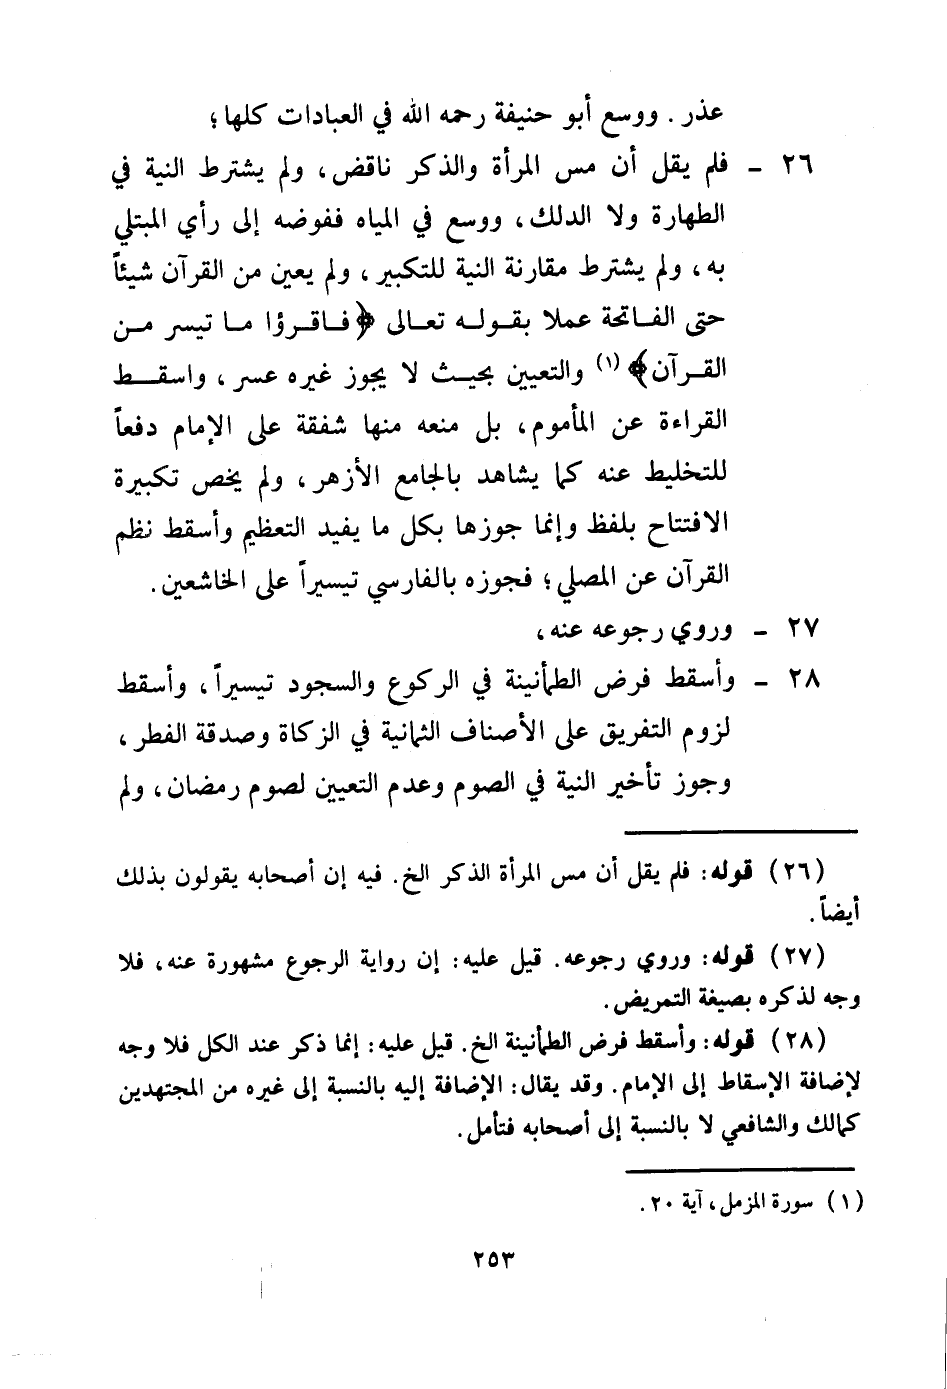 عذر . ووسع أبو حنيفة رحمه الله في العبادات كلها ؛
٢٦ ـ فلم يقل أن مس المرأة والذكر ناقض ، ولم يشترط النية في
الطهارة ولا الدلك ، ووسع في المياه ففوضه إلى رأي المبتلي
به ، ولم يشترط مقارنة النية للتكبير ، ولم يعين من القرآن شيئاً
حتى الفاتحة عملا بقوله تعالى ﴿فاقرؤا ما تيسر من
القرآن﴾ (١) والتعيين بحيث لا يجوز غيره عسر ، واسقط
القراءة عن المأموم ، بل منعه منها شفقة على الإمام دفعاً
للتخليط عنه كما يشاهد بالجامع الأزهر ، ولم يخص تكبيرة
الافتتاح بلفظ وإنما جوزها بكل ما يفيد التعظيم وأسقط نظم
القرآن عن المصلي ؛ فجوزه بالفارسي تيسيراً على الخاشعين .
٢٧ ـ وروي رجوعه عنه ،
٢٨ ـ وأسقط فرض الطمأنينة في الركوع والسجود تيسيراً ، وأسقط
لزوم التفريق على الأصناف الثمانية في الزكاة وصدقة الفطر ،
وجوز تأخير النية في الصوم وعدم التعيين لصوم رمضان ، ولم
(٢٦) قوله : فلم يقل أن مس المرأة الذكر الخ . فيه إن أصحابه يقولون بذلك
أيضاً .
(٢٧) قوله : وروي رجوعه . قيل عليه : إن رواية الرجوع مشهورة عنه ، فلا
وجه لذكره بصيغة التمريض .
(٢٨) قوله : وأسقط فرض الطمأنينة الخ . قيل عليه : إنما ذكر عند الكل فلا وجه
لإضافة الإسقاط إلى الإمام . وقد يقال : الإضافة إليه بالنسبة إلى غيره من المجتهدين
كمالك والشافعي لا بالنسبة إلى أصحابه فتأمل .
(١) سورة المزمل ، آية ٢٠ .
٢٥٣